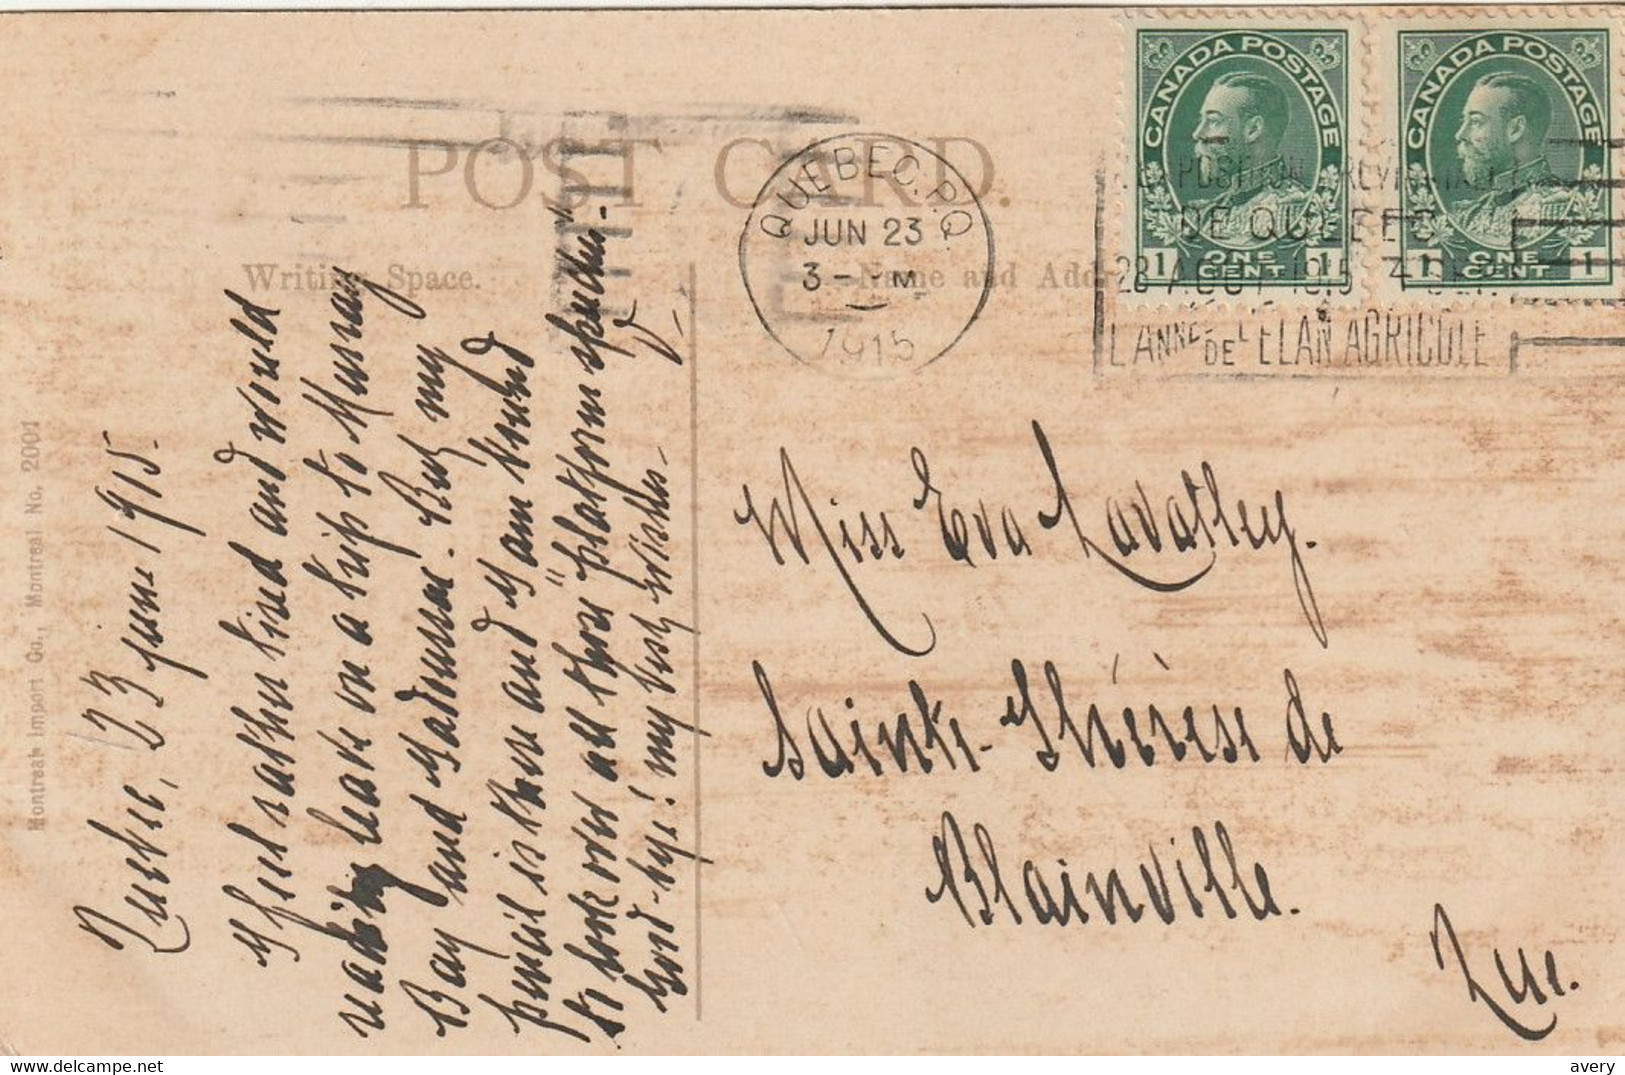 POST CARD.
Writing Space.
Name and Addr
Montreal Import Co., Montreal No. 2001
QUEBEC. P.Q.
JUN 23
3- M
1915
CANADA POSTAGE
1 ONE CENT 1
CANADA POSTAGE
1 ONE CENT 1
DE QUEBEC
L'ANNÉE DE L'ELAN AGRICOLE
Quebec, 23 june 1915.
I feel rather tired and would
readily leave on a trip to Murray
Bay and Tadoussac. But my
pencil is there and I am bound
to look over all those "platform speeches"-
Good-bye! my best wishes-
V-
Miss Eva Lavalley.
Sainte-Thérèse de
Blainville.
Que.
avery